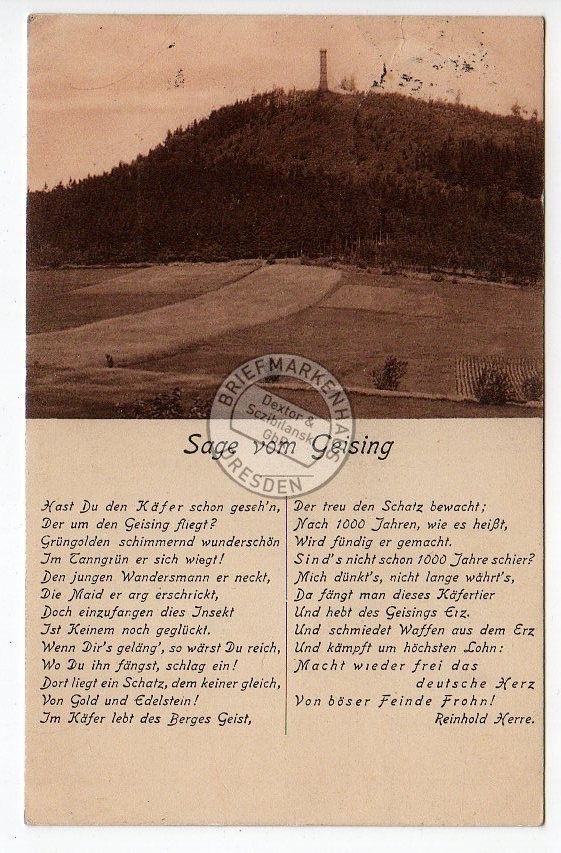 BRIEFMARKENHAUS
Dextor &
Sczibilanski
GbR
DRESDEN
Sage vom Geising
Hast Du den Käfer schon geseh'n,
Der um den Geising fliegt?
Grüngolden schimmernd wunderschön
Im Tanngrün er sich wiegt!
Den jungen Wandersmann er neckt,
Die Maid er arg erschrickt,
Doch einzufangen dies Insekt
Ist Keinem noch geglückt.
Wenn Dir's geläng', so wärst Du reich,
Wo Du ihn fängst, schlag ein!
Dort liegt ein Schatz, dem keiner gleich,
Von Gold und Edelstein!
Im Käfer lebt des Berges Geist,
Der treu den Schatz bewacht;
Nach 1000 Jahren, wie es heißt,
Wird fündig er gemacht.
Sind's nicht schon 1000 Jahre schier?
Mich dünkt's, nicht lange währt's,
Da fängt man dieses Käfertier
Und hebt des Geisings Erz.
Und schmiedet Waffen aus dem Erz
Und kämpft um höchsten Lohn:
Macht wieder frei das
deutsche Herz
Von böser Feinde Frohn!
Reinhold Herre.